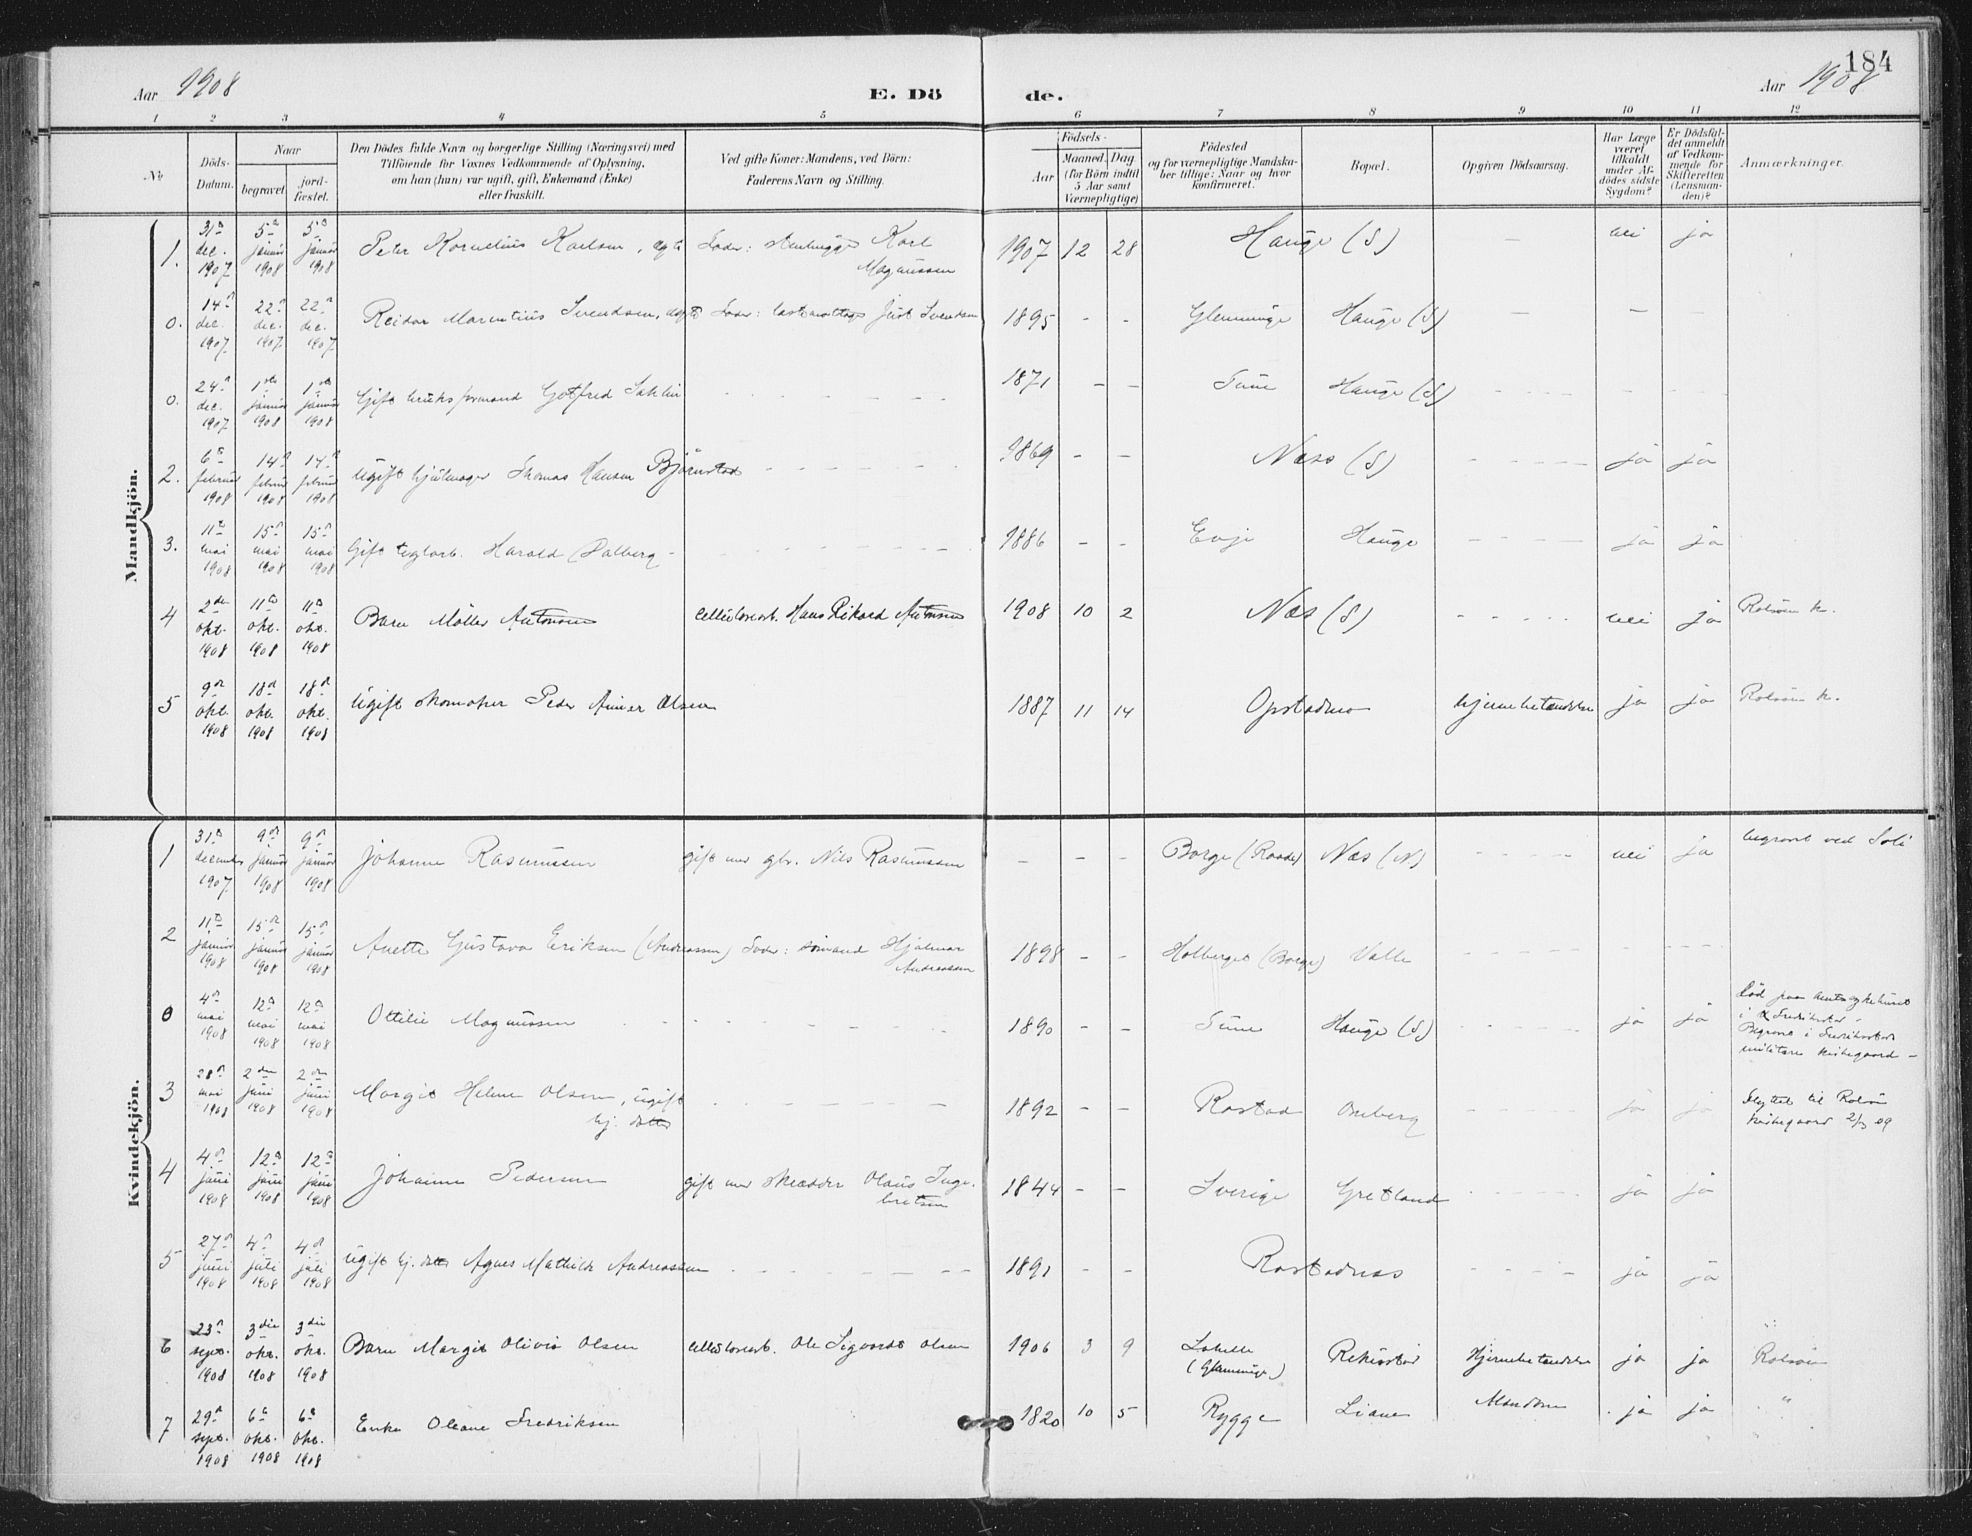 184
Aar 1908 E. Dö de. Aar 1908
1 2 3 4 5 6 7 8 9 10 11 12
No.
Döds-
Datum.
Naar
begravet.
jord-
fæstet.
Den Dödes fulde Navn og borgerlige Stilling (Næringsvei) med
Tilföiende for Voxnes Vedkommende af Oplysning,
om han (hun) var ugift, gift, Enkemand (Enke)
eller fraskilt.
Ved gifte Koner: Mandens, ved Börn:
Faderens Navn og Stilling.
Födsels-
Aar
Maaned. Dag.
(for Börn indtil
5 Aar samt
Værnepligtige)
Födested
og for værnepligtige Mandska-
ber tillige: Naar og hvor
konfirmeret.
Bopæl.
Opgiven Dödsaarsag.
Har Læge
været
tilkaldt
under Af-
dödes sidste
Sygdom?
Er Dödsfal-
det anmeldt
af Vedkom-
mende for
Skifteretten
(Lensman-
den)?
Anmærkninger.
Mandkjön.
1. 31te dec. 1907 5te januar 1908 5te januar 1908 Peter Kornelius Karlsen, egte Fader: stenhugger Karl Magnussen 1907 12 28 Hauge (S) — nei ja
0. 14de dec. 1907 22de dec. 1907 22de dec. 1907 Reidar Marentius Svendsen, Fader: Just Svendsen 1895 - - Glemminge Hauge (S) — — —
0. 24de dec. 1907 1ste januar 1908 1ste januar 1908 Gift bruksformand Gotfred Sahlin 1871 - - Tune Hauge (S)
2. 6te februar 1908 14de februar 1908 14de februar 1908 Ugift hjulmager Thomas Hansen Björnstad 1869 - - Næss (S) ja ja
3. 11te mai 1908 15de mai 1908 15de mai 1908 Gift teglarb. Harald Dalberg 1886 - - Evje Hauge ja ja
4 2den okt. 1908 11te okt. 1908 11te okt. 1908 Barn Möller Antonsen cellulosearb. Hans Rikard Antonsen 1908 10 2 Næs (S) nei ja Rolsöen k.
5 9de okt. 1908 18de okt. 1908 18de okt. 1908 Ugift skomaker Peder Olsen 1887 11 14 Opstadmo hjernebetændelse ja ja Rolsöen k.
Kvindekjön.
1 31te december 1907 9de januar 1908 9de januar 1908 Johanne Rasmussen gift med gbr. Nils Rasmussen - - - Borge (Raade) Næs (N) nei ja begravet ved Soli
2 11te januar 1908 15de januar 1908 15de januar 1908 Anette Gustava Eriksen (Andreassen) Fader: sömand Hjalmar Andreassen 1898 - - (Borge) Valle
0 4de mai 1908 12te mai 1908 12te mai 1908 Ottilie Magnussen 1890 - - Tune Hauge (S) ja ja Död paa amtssykehuset
i Fredrikstad -
Begravet i Fredrikstad
militære kirkegaard -
3 28de mai 1908 2den juni 1908 2den juni 1908 Margit Helene Olsen, ugift
hj. datter 1892 - - Rostad Omberg ja ja Flyttet til Rolsöi
kirkegaard 2/3 09
4 4de juni 1908 12te juni 1908 12te juni 1908 Johanne Pedersen gift med skrædder Olaus Inge-
bretsen 1844 - - Sverige Gretland ja ja
5 27de juni 1908 4de juli 1908 4de juli 1908 Ugift hj. datter Agnes Mathilde Andreassen 1891 - - Rostadnes ja ja
6 23de sept. 1908 3die okt. 1908 3die okt. 1908 Barn Margit Olivia Olsen cellulosearb. Ole Sigvardt Olsen 1906 3 9 Labella
(Glemminge) Rekustad Hjernebetændelse ja ja Rolsöen
7 29de sept. 1908 6te okt. 1908 6te okt. 1908 Enke Oleane Fredriksen 1820 10 5 Rygge Liane Alderdom ja ja "